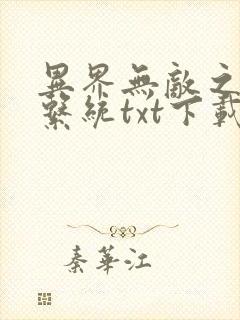 異界無敵之
繫統txt下載
秦華江